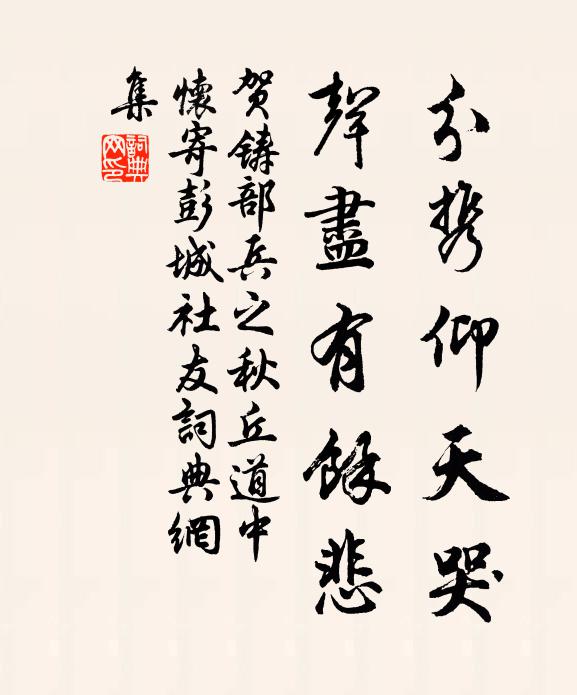 分携仰天哭
聲盡有餘悲
賀鑄部兵之秋丘道中
懷寄彭城社友詞典網
集
詞典
网印